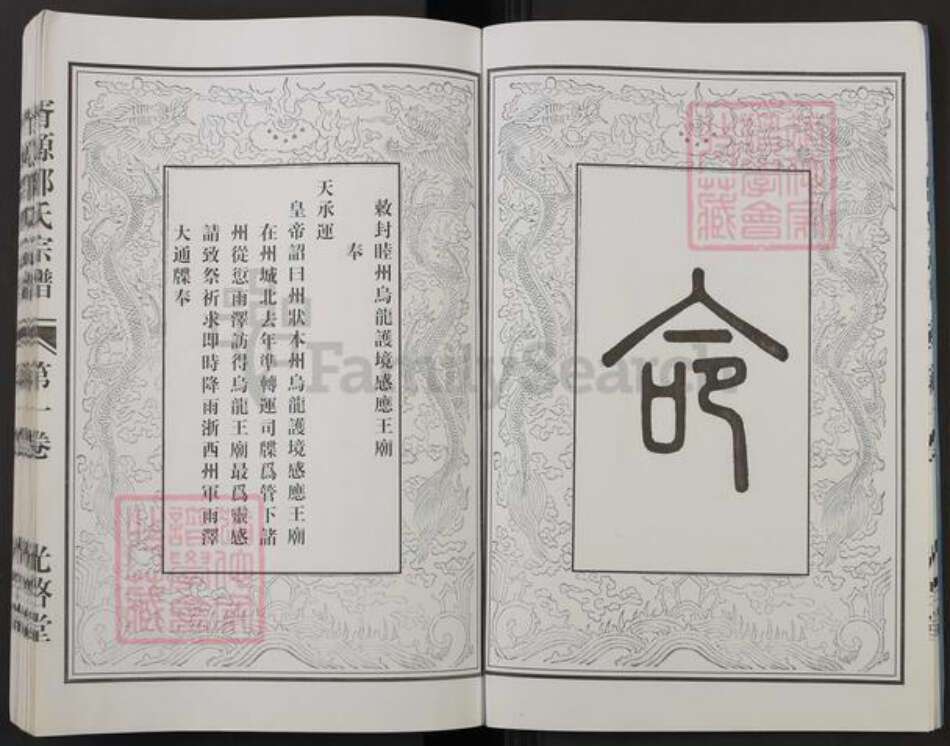 命
敕封睦州烏龍護境感應王廟
奉
天承運
皇帝詔曰州狀本州烏龍護境感應王廟
在州城北去年準轉運司牒爲管下諸
州從愆雨澤訪得烏龍王廟最爲靈感
請致祭祈求即時降雨浙西州軍雨澤
大通牒奉
胥源邵氏宗譜
第一卷
光啓堂
FamilySearch